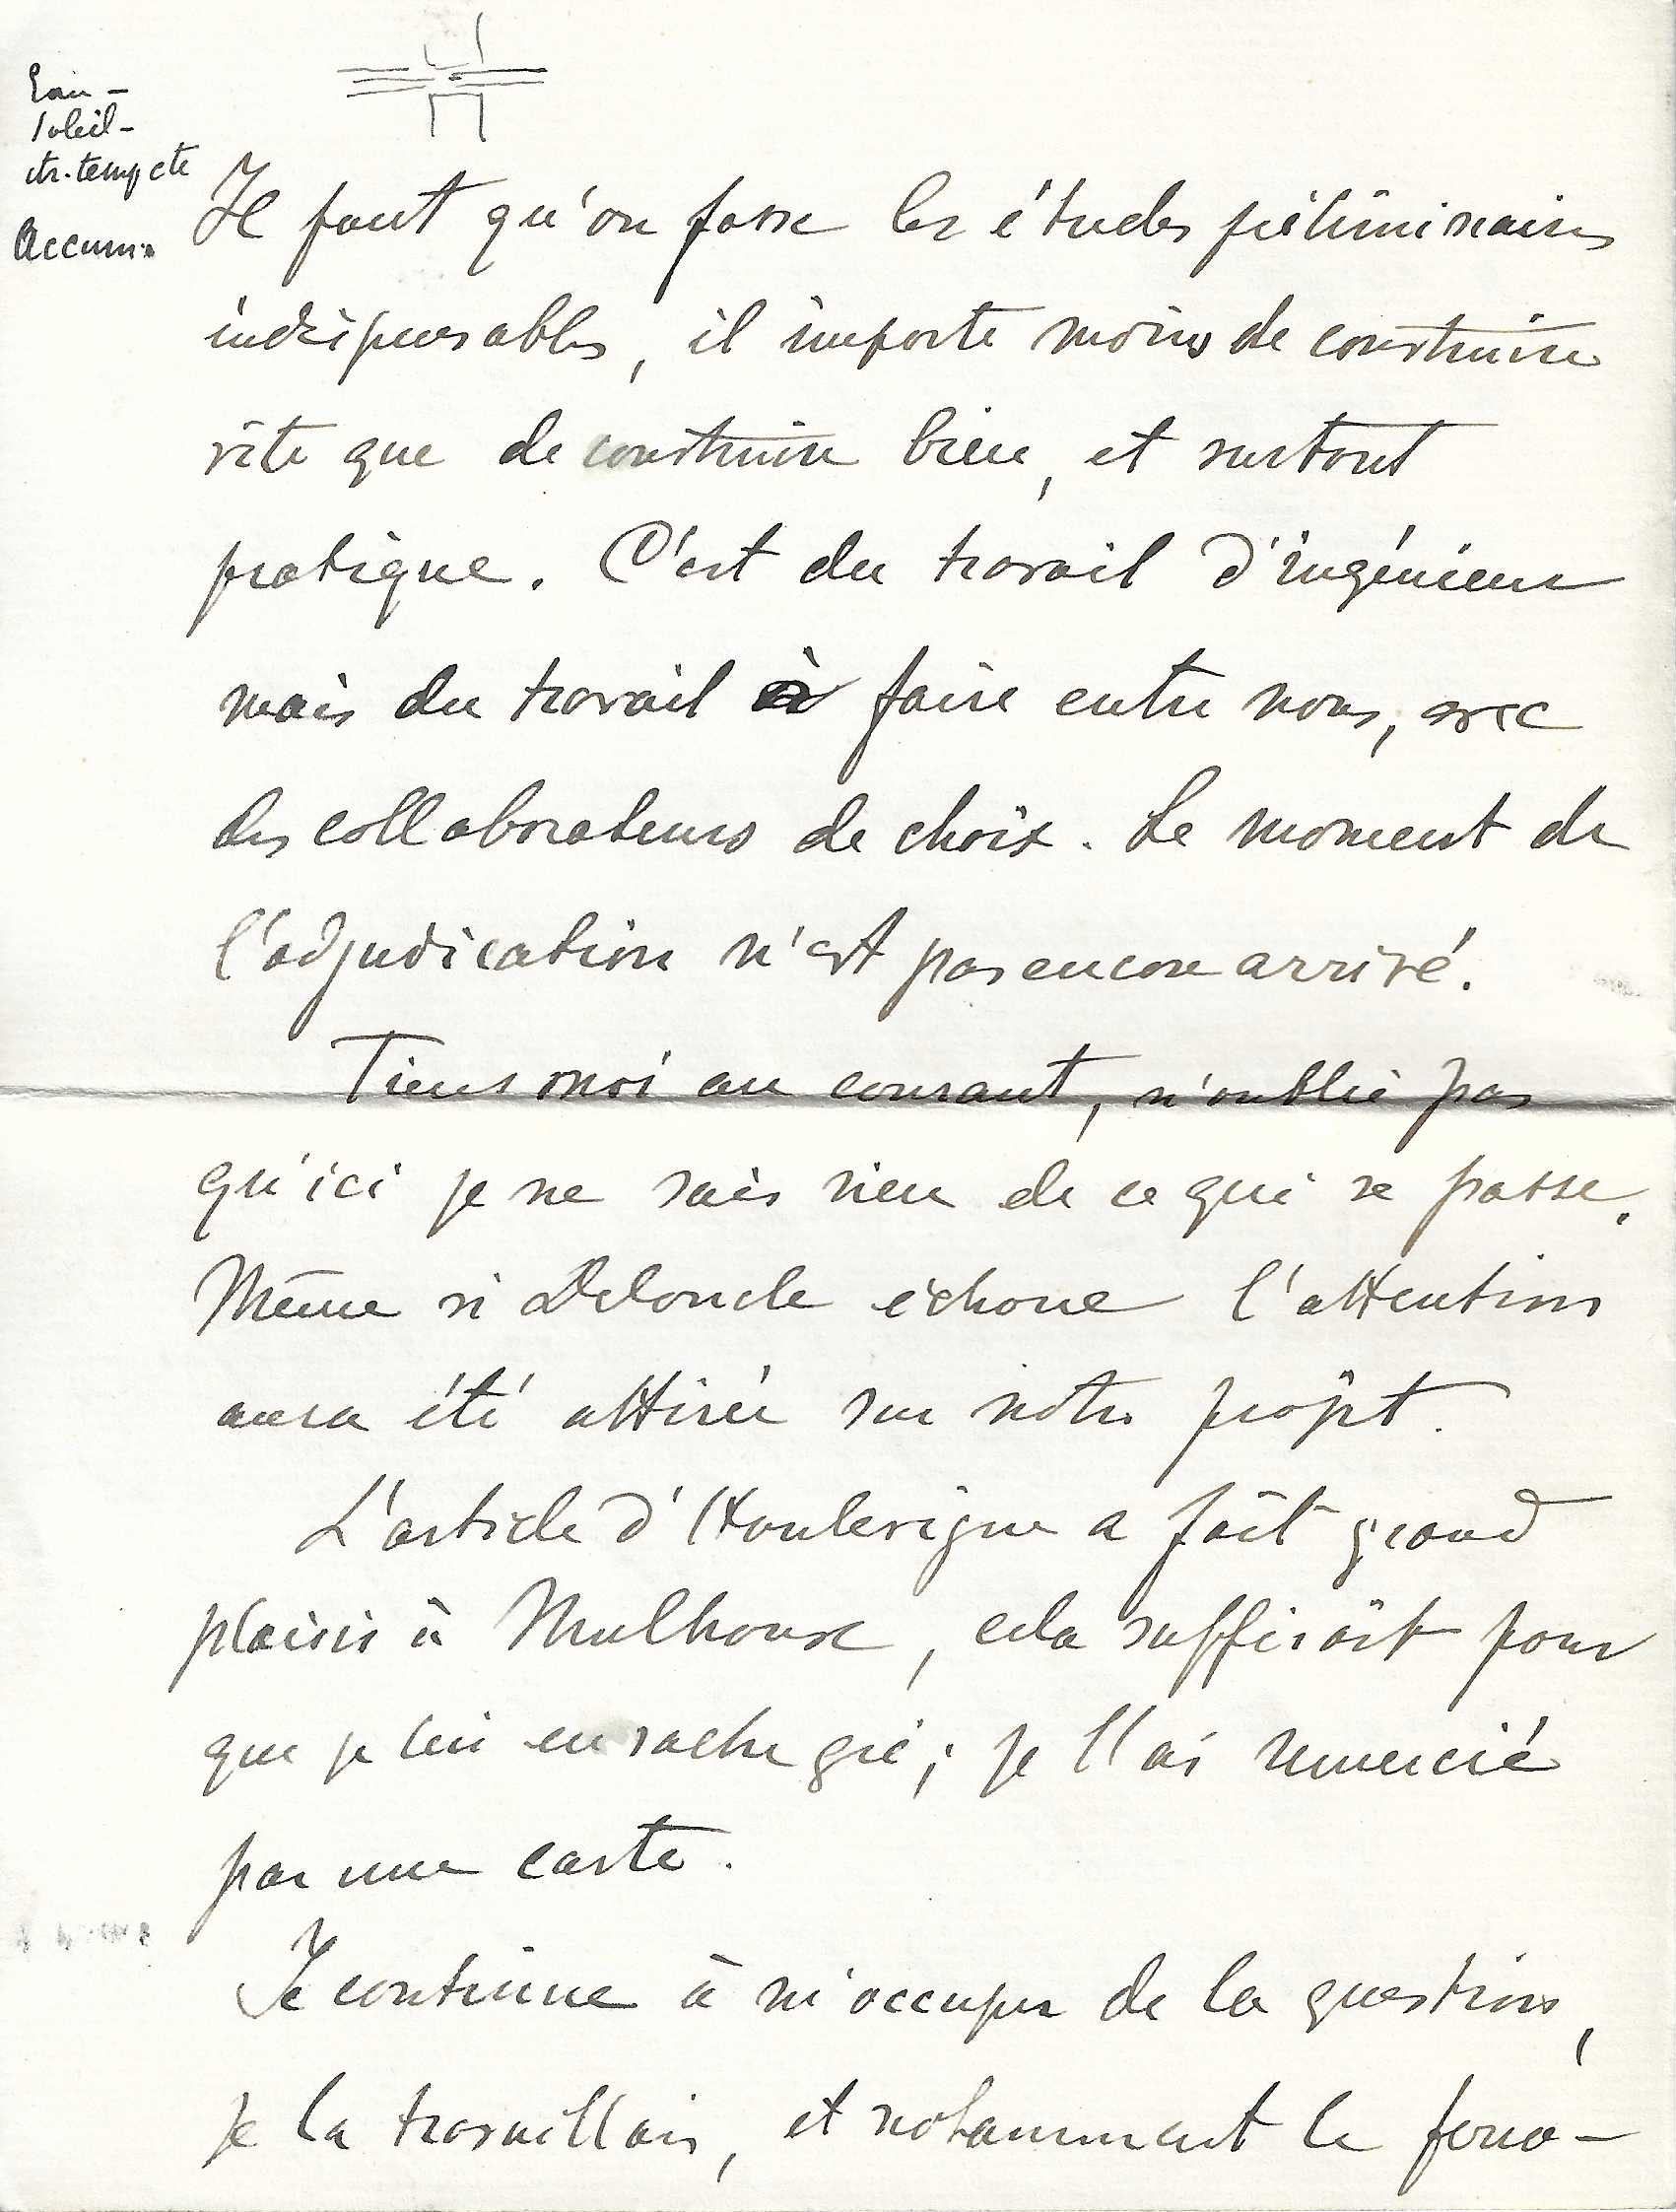 Eau -
Soleil -
tempete
Accum.
Il faut qu'on fasse les études préliminaires
indispensables, il importe moins de construire
vite que de construire bien, et surtout
pratique. C'est du travail d'ingénieur
mais du travail à faire entre nous, avec
des collaborateurs de choix. Le moment de
l'adjudication n'est pas encore arrivé.
Tiens moi au courant, n'oublie pas
qu'ici je ne sais rien de ce qui se passe.
Même si Deloncle échoue l'attention
aura été attirée sur notre projet.
L'article d'Houlevigue a fait grand
plaisir à Mulhouse, cela suffirait pour
que je lui en sache gré ; je l'ai remercié
par une carte.
Je continue à m'occuper de la question,
je la travaillais, et notamment le ferro-